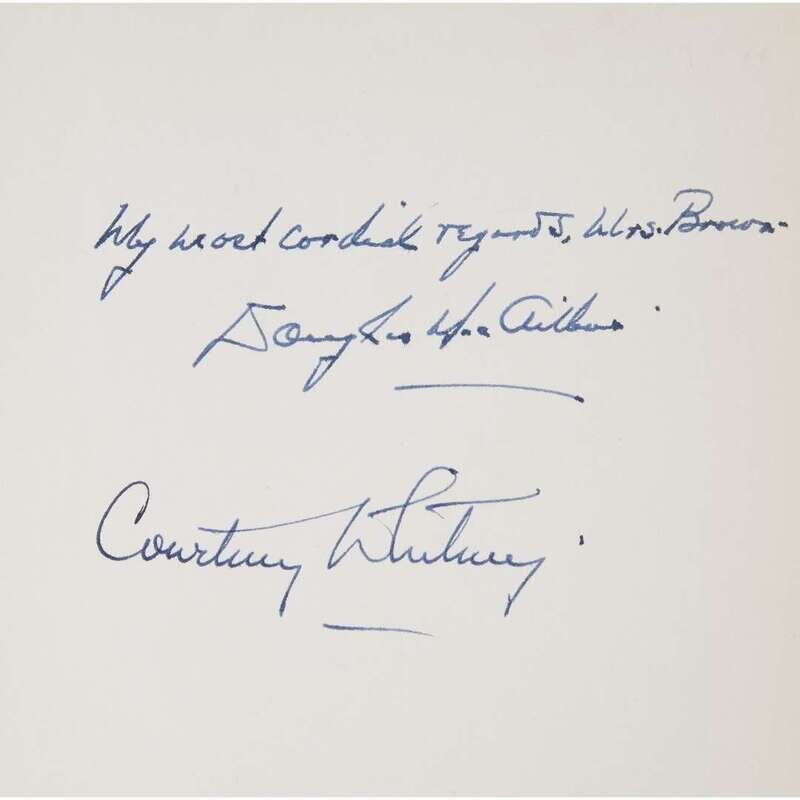 My most cordial regards, Mrs. Brown-
Douglas MacArthur
Courtney Whitney